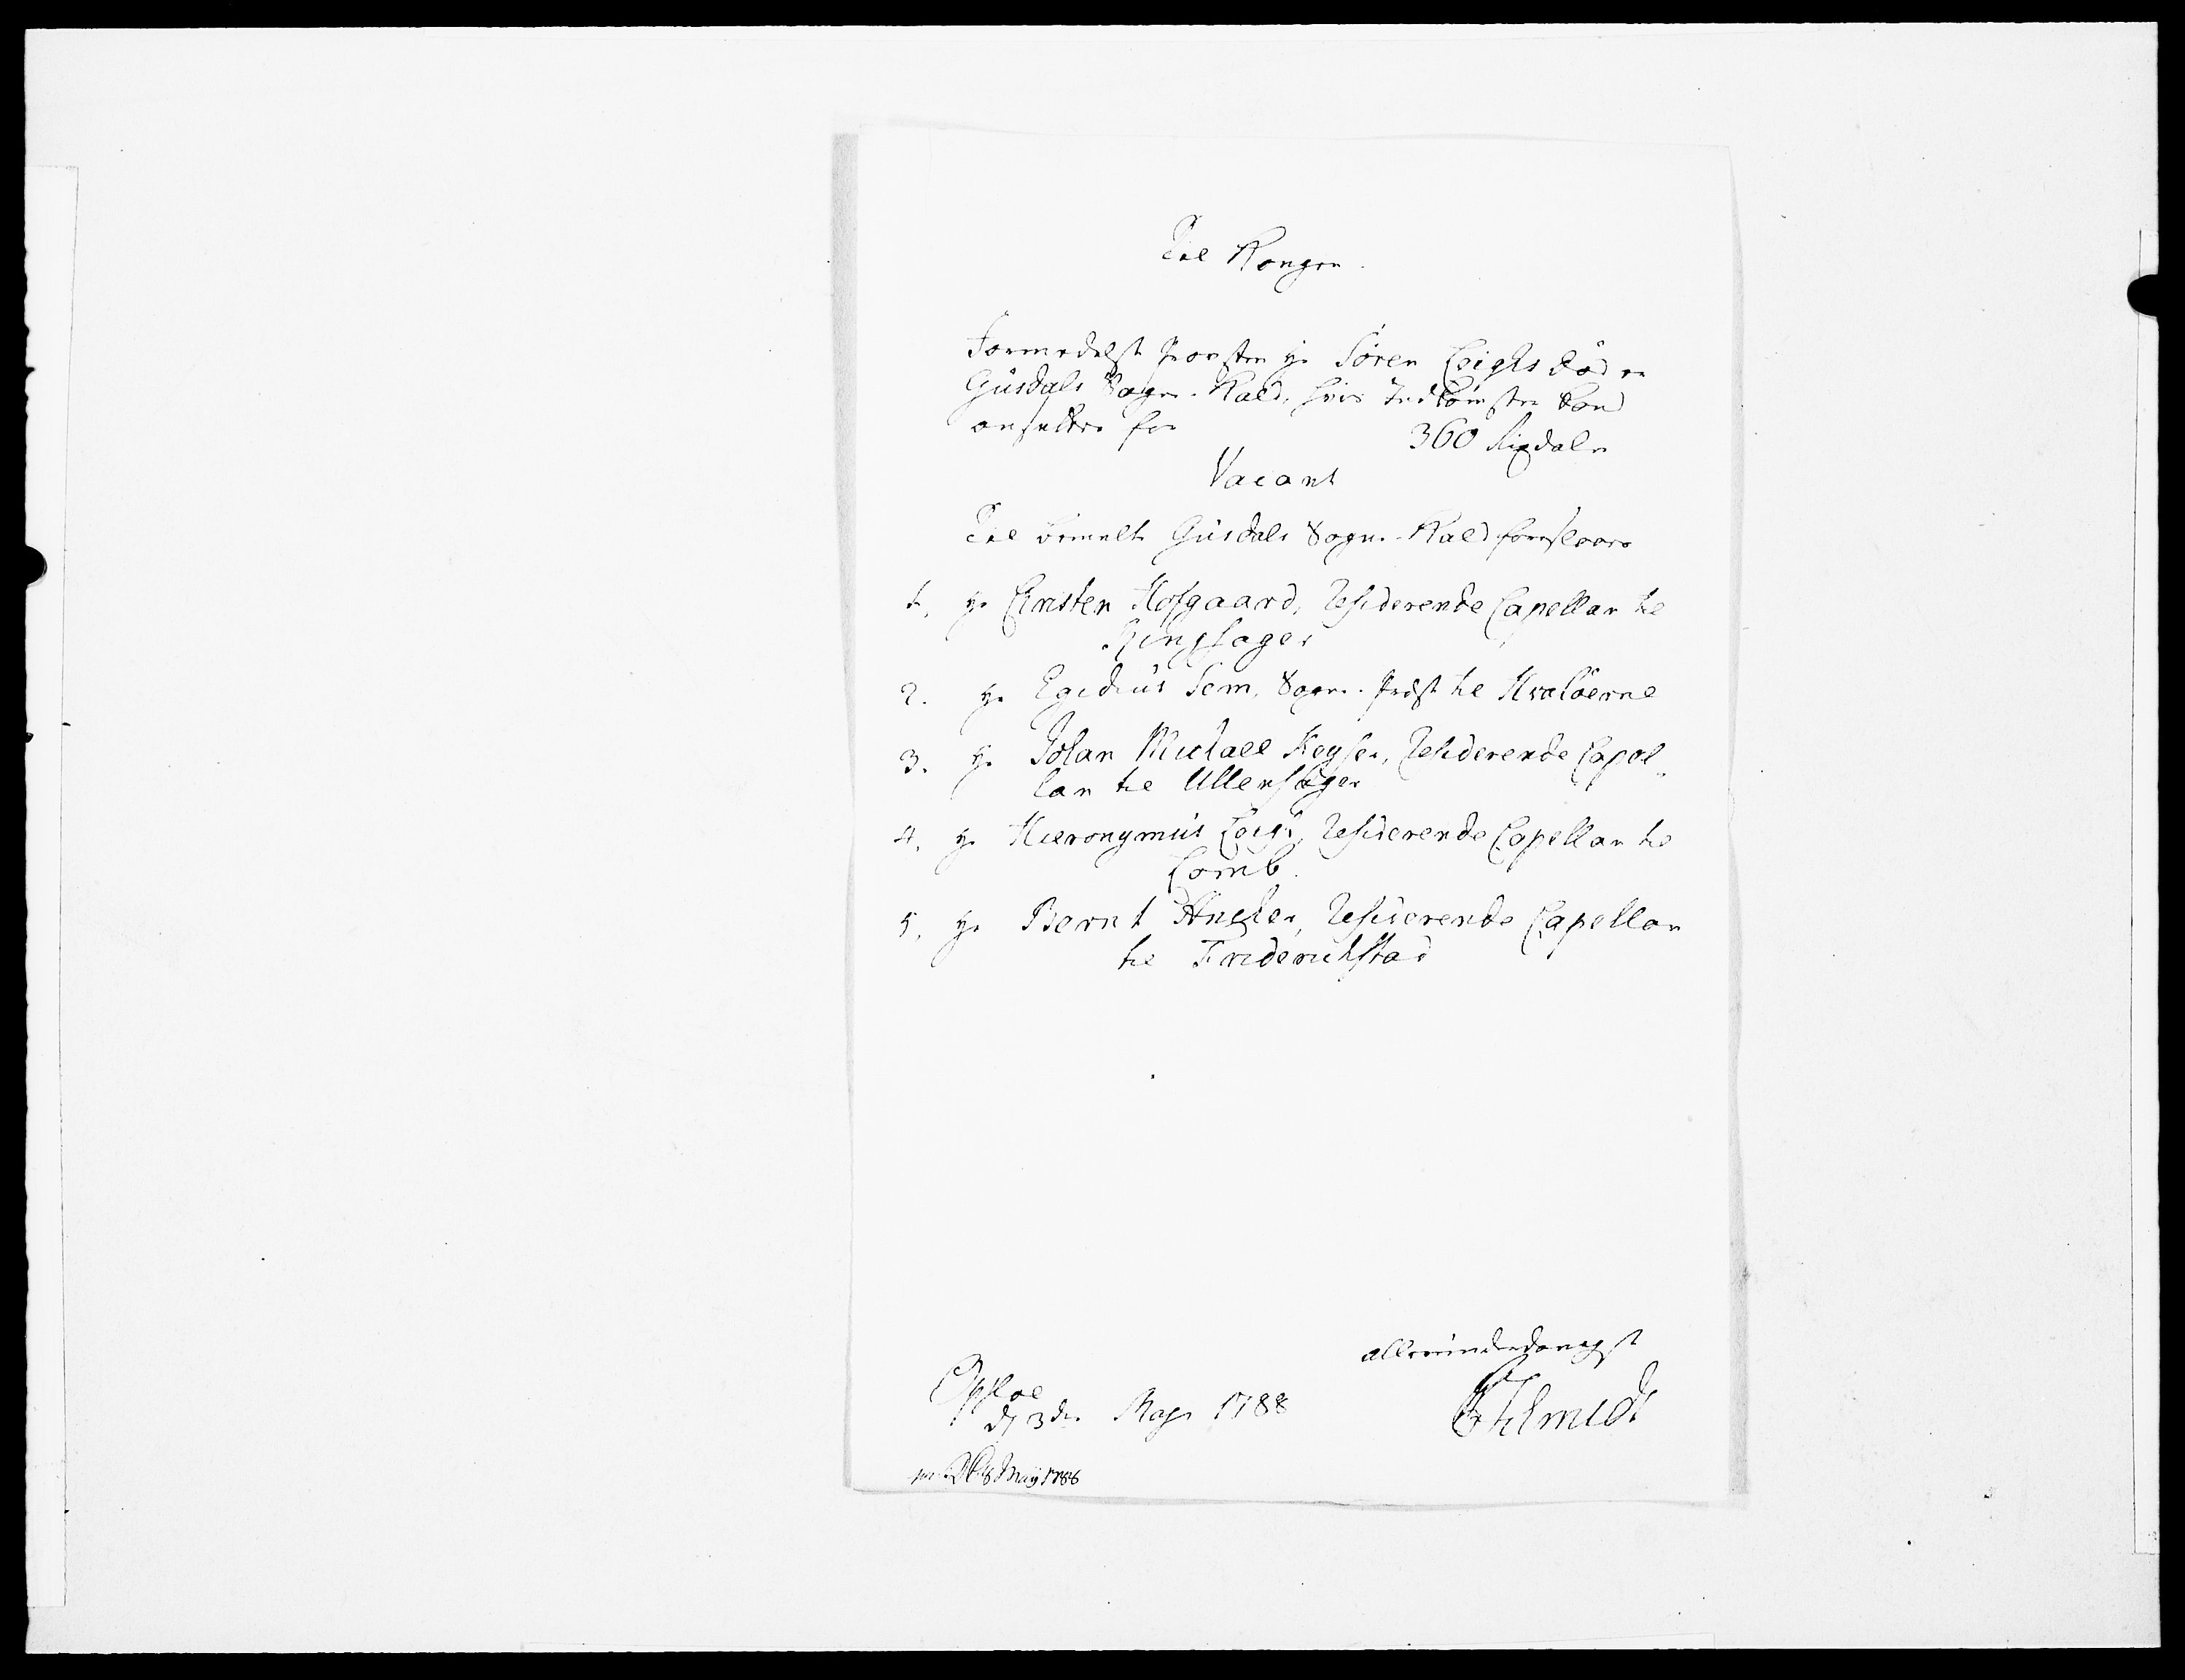 Til Kongen.
Formedelst Provsten Hr Sören Leighs död er
Gusdals Sogne-Kald, hvis Indkomster kand
ansættes for 360 Rigsdaler
Vacant
Til bemelte Gusdals Sogne-Kald foreslaaes
1. Hr Christen Hofgaard, Residerende Capellan til
Ringsager
2. Hr Egidius Sem, Sogne-Præst til Hvalöerne
3. Hr Johan Michael Keyser, Residerende Capel-
lan til Ullensager
4. Hr Hieronymus Leigh, Residerende Capellan til
Lomb.
5. Hr Bernt Ancher, Residerende Capellan
til Friderichstad
allerunderdanigst
Opsloe
d. 3die May 1788
Schmidt
8 May 1788